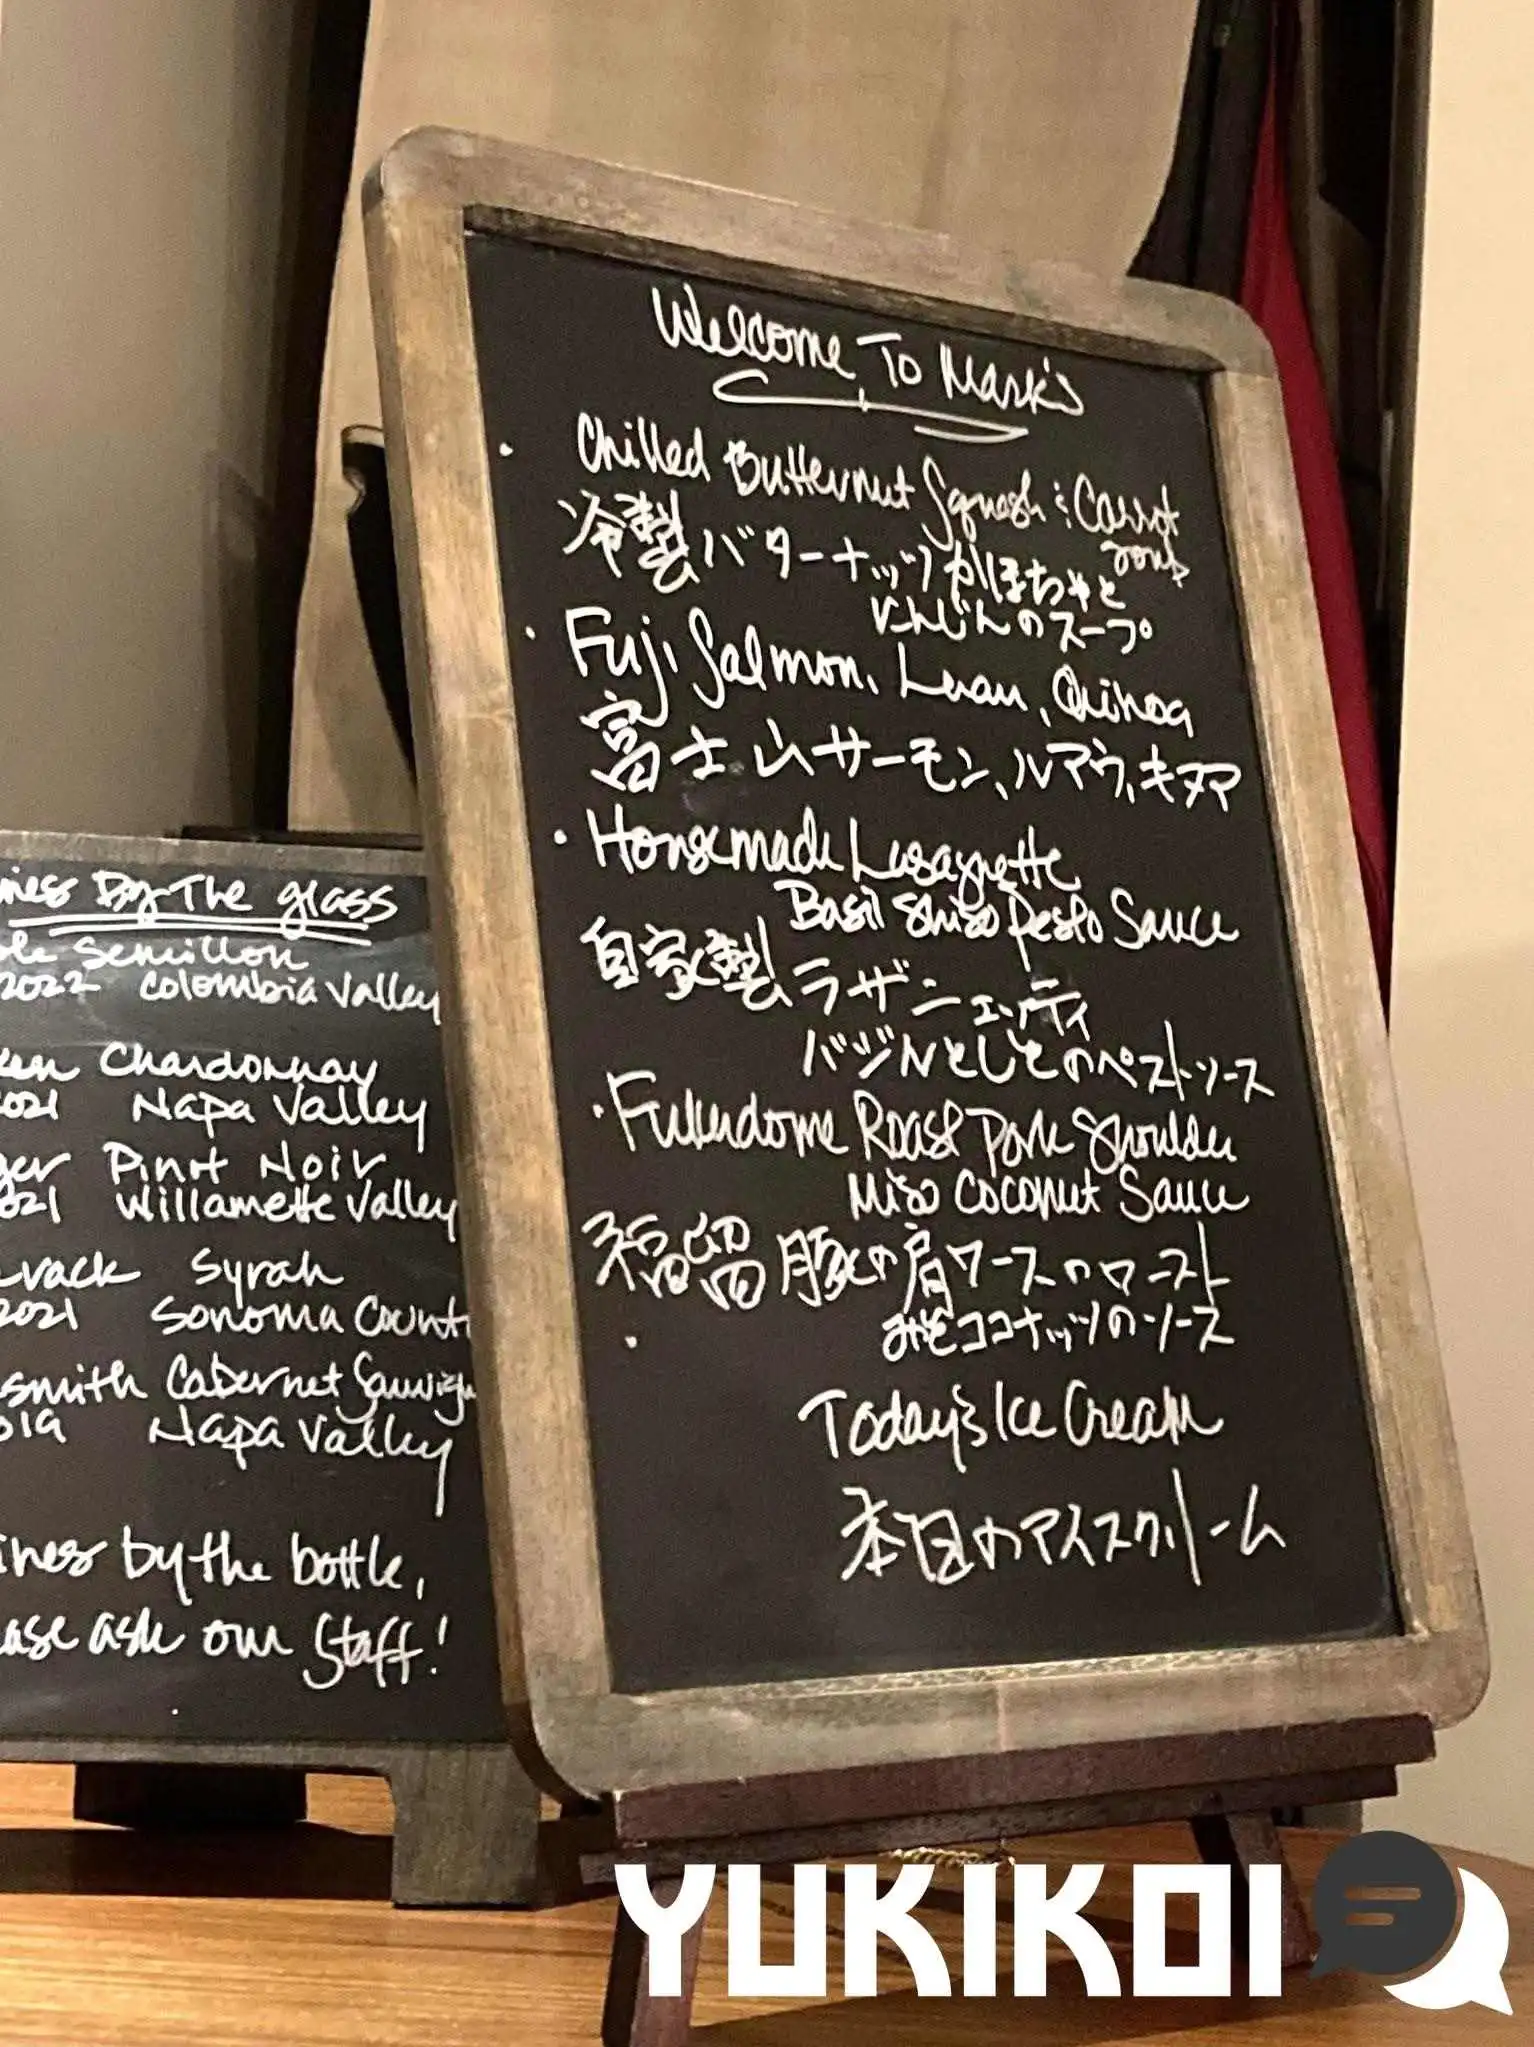 Welcome To Mark's
· Chilled Butternut Squash & Carrot
soup
冷製バターナッツかぼちゃと
にんじんのスープ
· Fuji Salmon, Luau, Quinoa
富士山サーモン、ルアウ、キヌア
· Homemade Lasagnette
Basil Shiso Pesto Sauce
自家製ラザニェッティ
バジルとしそのペストソース
· Fukudome Roast Pork Shoulder
Miso Coconut Sauce
福留豚の肩ロースのロースト
みそココナッツのソース
·
Today's Ice Cream
本日のアイスクリーム
By The glass
Semillon
2022 Colombia Valley
Chardonnay
2021 Napa Valley
Pinot Noir
2021 Willamette Valley
Syrah
2021 Sonoma County
smith Cabernet Sauvign
2019 Napa Valley
by the bottle,
ask our Staff!
YUKIKOI